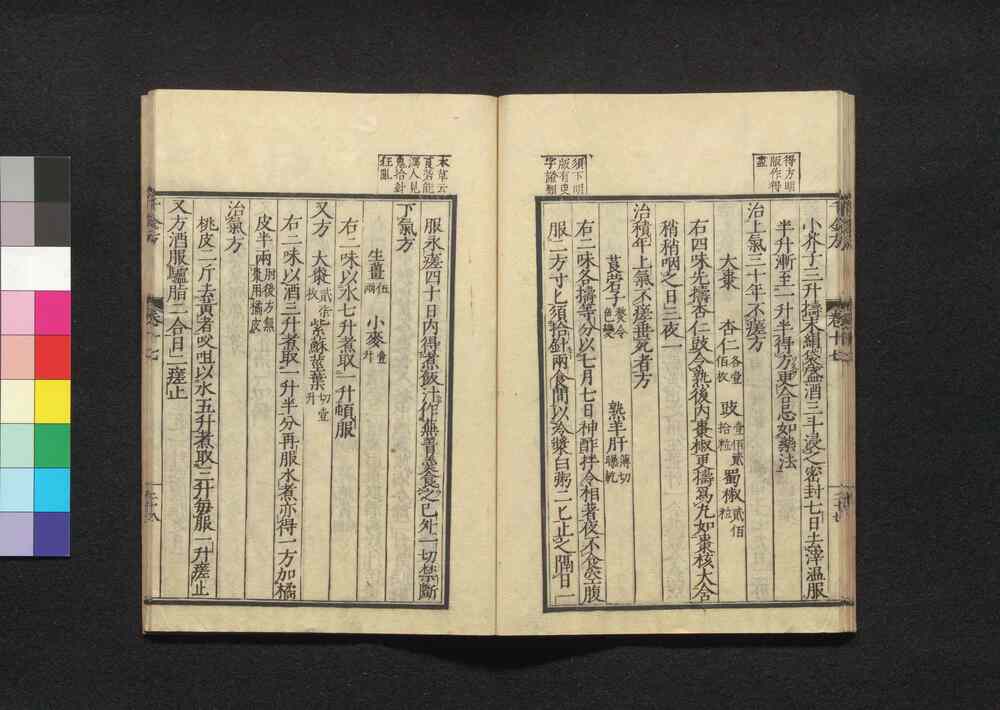 得方明
版作得
盡
小芥子三升擣末絹袋盛酒三斗浸之密封七日去滓溫服
半升漸至一升半得方更合忌如藥法
治上氣三十年不瘥方
大棗 杏仁各壹佰枚 豉壹佰貳拾粒 蜀椒貳佰粒
右四味先擣杏仁豉令熟後內棗椒更擣爲丸如棗核大含
稍稍咽之日三夜一
治積年上氣不瘥垂死者方
莨菪子熬令色變 熟羊肝薄切曝乾
右二味各擣等分以七月七日神酢拌令相著夜不食空腹
服二方寸匕須拾針兩食間以冷漿白粥二匕止之隔日一
須下明
版有臾
字證類
服永瘥四十日內得煮飯汁作蕪菁羹食之已外一切禁斷
下氣方
生薑伍兩 小麥壹升
右二味以水七升煮取一升頓服
又方 大棗貳拾枚 紫蘇莖葉切壹升
右二味以酒三升煮取一升半分再服水煮亦得一方加橘
皮半兩肘後方無棗用橘皮
治氣方
桃皮二斤去黃者㕮咀以水五升煮取三升每服一升瘥止
又方酒服驢脂二合日二瘥止
本草云
莨菪能
滿人見
鬼拾針
狂亂
千金方
卷十七